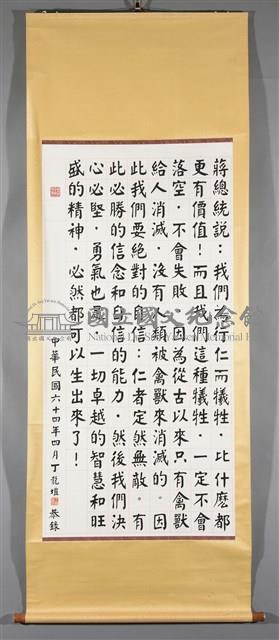 蔣總統說：我們為了仁而犧牲，比什麽都
更有價值！而且我們這種犧牲，一定不會
落空，不會失敗，因為從古以來只有禽獸
給人消滅，沒有人類被禽獸來消滅的。因
此我們要絕對的自信：仁者定然無敵。有
此必勝的信念和自信的能力，然後我們決
心必堅，勇氣也足，一切卓越的智慧和旺
盛的精神，必然都可以生出來了！
中華民國六十四年四月丁龍塏恭錄
國立國父紀念館